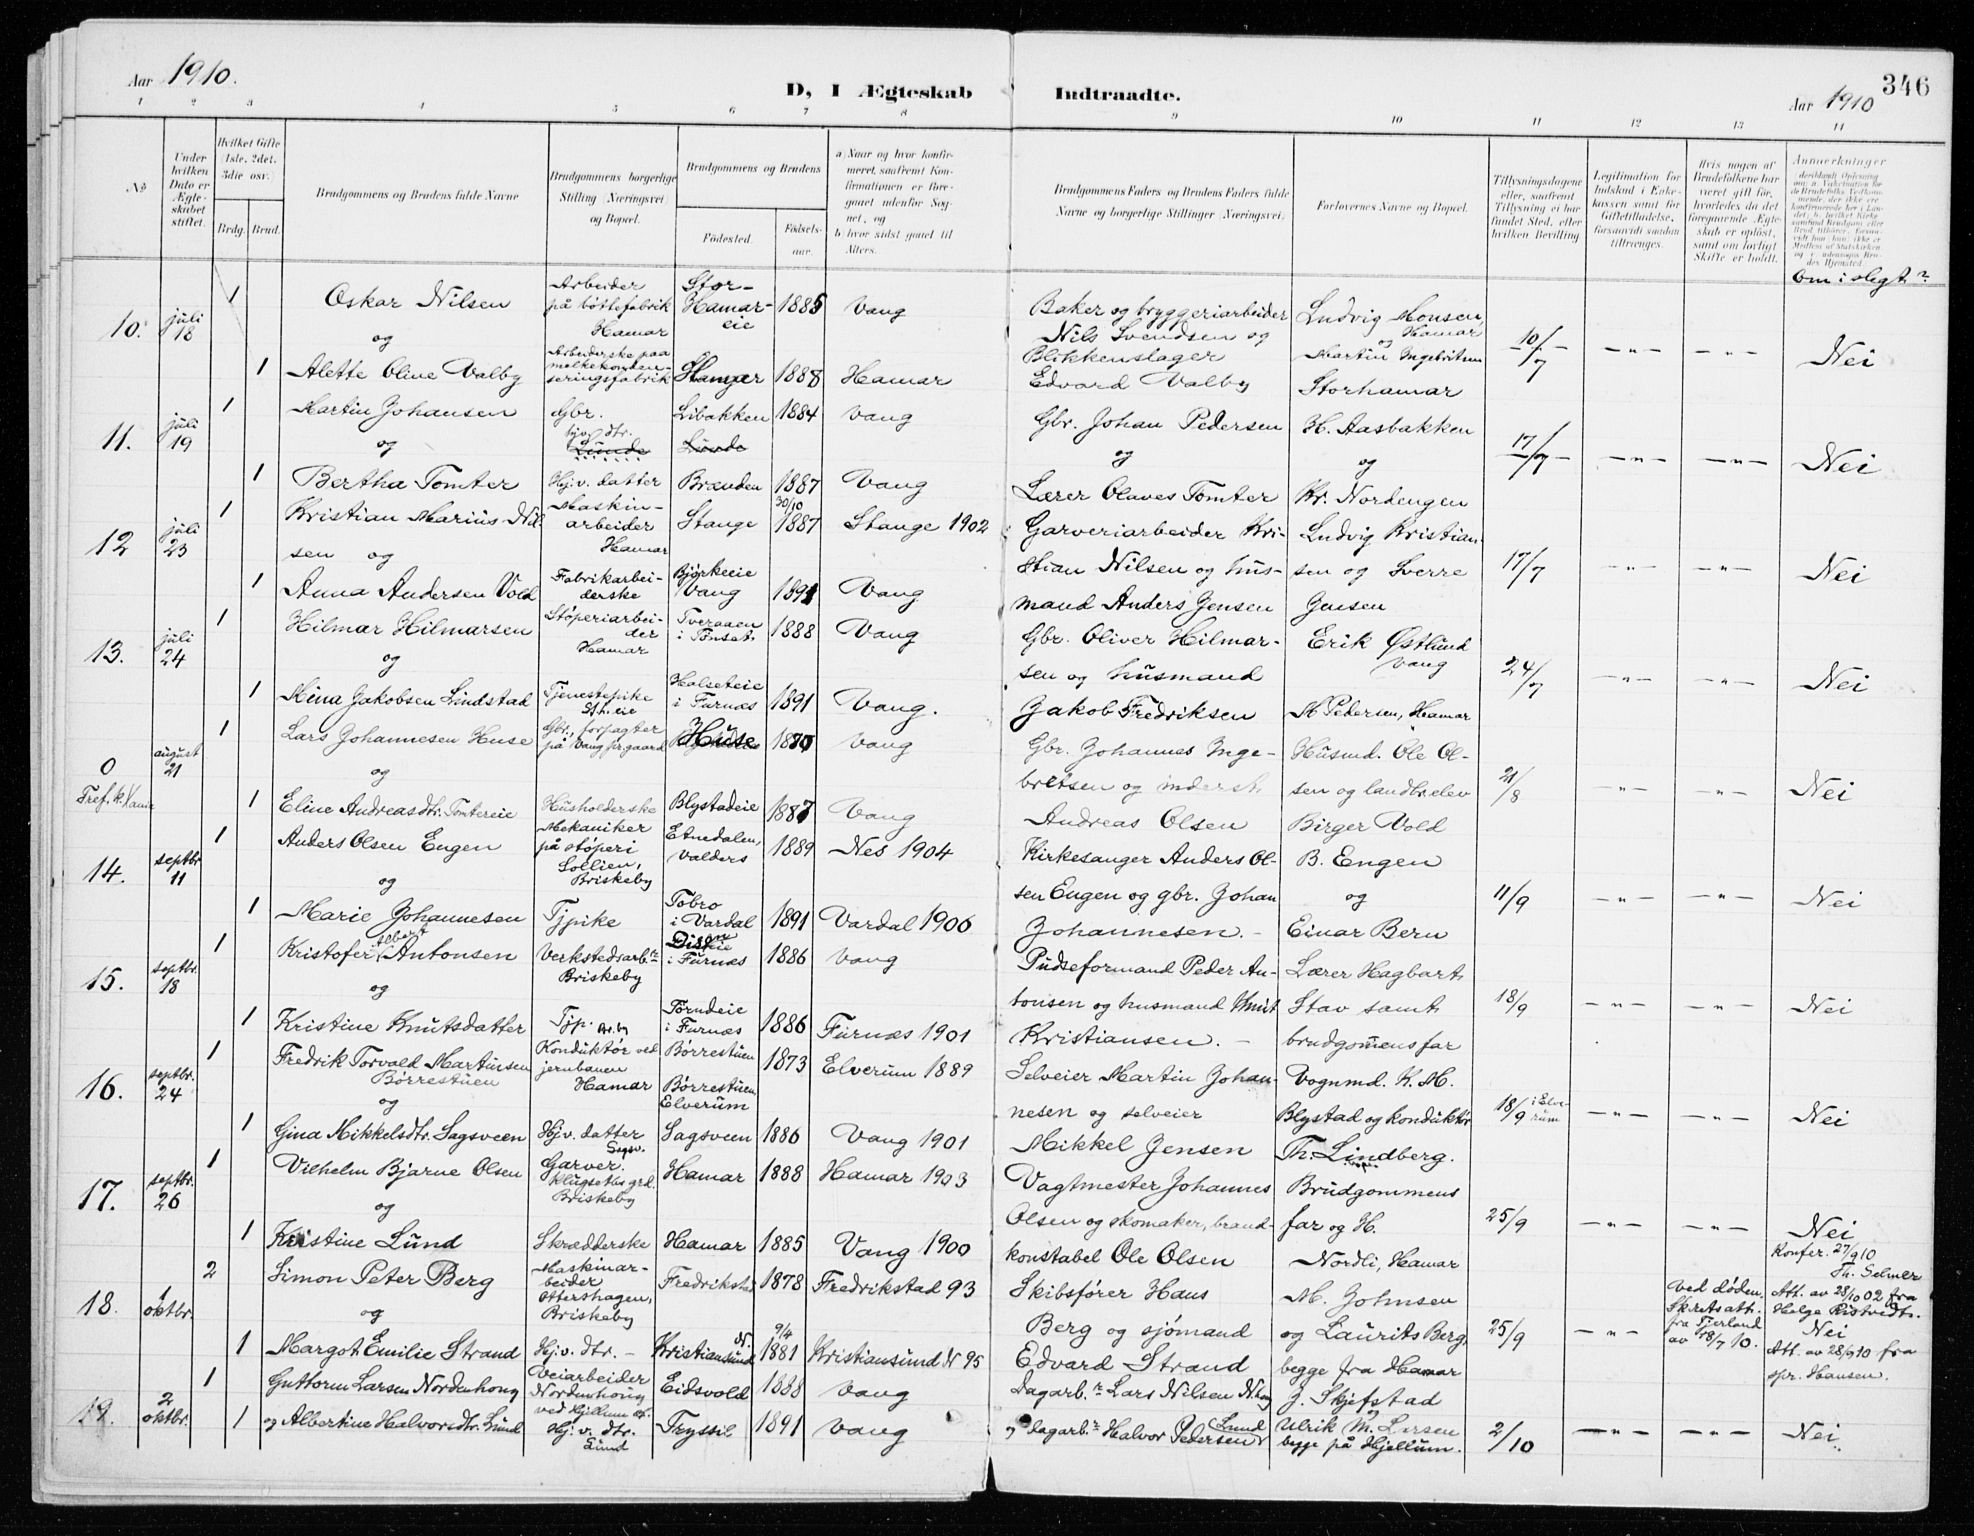 Aar 1910.
D, I Ægteskab Indtraadte.
Aar 1910
346
1 2 3 4 5 6 7 8 9 10 11 12 13 14
No
Under hvilken Dato er Ægteskabet stiftet.
Hvilket Gifte 1ste, 2det, 3die osv.
Brdg. Brud.
Brudgommens og Brudens fulde Navne
Brudgommens borgerlige Stilling Næringsvei og Bopæl.
Brudgommens og Brudens
Fødested.
Fødselsaar.
a) Naar og hvor konfirmeret, saafremt Konfirmationen er foregaaet udenfor Sognet, og
b) hvor sidst gaaet til Alters.
Brudgommens Faders og Brudens Faders fulde Navne og borgerlige Stillinger Næringsvei.
Forlovernes Navne og Bopæl.
Tillysningsdagene eller, saafremt Tillysning ei har fundet Sted, efter hvilken Bevilling
Legitimation for Indskud i Enkekassen samt for Giftetilladelse, forsaavidt saadan tiltrænges.
Hvis nogen af Brudefolkene har været gift før, hvorledes da det foregaaende Ægteskab er opløst, samt om lovligt Skifte er holdt.
Anmerkninger
Om i slegt?
10. juli 18 1 Oskar Nilsen Arbeider på bøttefabrik Hamar Stor-Hamar-eie 1885 Vang Baker og bryggeriarbeider Nils Svendsen og Ludvig Monsen, Hamar 10/7 — " — — " — Nei
og
1 Alette Oline Valby Arbeiderske paa melkekondenseringsfabrik Hamar 1888 Hamar Blikkenslager Edvard Valby og Martin Ingebritsen Storhamar
11. juli 19 1 Martin Johansen Gbr. Libakken 1884 Vang Gbr. Johan Pedersen H. Aasbakken 17/7 — " — — " — Nei
og Lunde Lunde og og
1 Bertha Tomter Hj.v. datter Brænden 1887 Vang Lærer Olaves Tomter Kr. Nordengen
12 juli 23 1 Kristian Marius Nilsen og Maskinarbeider Hamar Stange 30/10 1887 Stange 1902 Garveriarbeider Kristian Nilsen og hus- Ludvig Kristiansen og Sverre 17/7 — " — — " — Nei
1 Anna Andersen Vold Fabrikarbeiderske Bjørkeeie Vang 1891 Vang mand Anders Jensen Jensen
13. juli 24 1 Hilmar Hilmarsen Støperiarbeider Hamar Tveraaen i Tønset. 1888 Vang Gbr. Oliver Hilmarsen og husmand Erik Østlund Vang 24/7 — " — — " — Nei
og
1 Mina Jakobsen Lindstad Tjenestepike St.h.eie Halseteie i Furnæs 1891 Vang. Jakob Fredriksen M Pedersen, Hamar
0 august 21 1 Lars Johannesen Huse Gbr., forpagter på Vang pr.gaard Huse Vang Gbr. Johannes Ingebretsen og inderst. Husmd. Ole Olsen og landbr.elev 21/8 — " — — " — Nei
og
1 Eline Andreasdtr. Tomtereie Husholderske Blystadeie 1887 Vang Andreas Olsen Birger Vold
14. septbr 11 1 Anders Olsen Engen Mekaniker på støperi Sollien, Briskeby Etnedalen, Valders 1889 Nes 1904 Kirkesanger Anders Olsen Engen og gbr. Johan B. Engen 11/9 — " — — " — Nei
og og
1 Marie Johannesen Tjpike Tobro i Vardal 1891 Vardal 1906 Johannesen. — Einar Bern
15. septbr. 18 1 Kristofer Albert Antonsen Verkstedsarb.r Briskeby i Furnæs 1886 Vang Pudseformand Peder Antonsen og husmand Knut Lærer Hagbart Stav samt 18/9 — " — — " — Nei
og
1 Kristine Knutsdatter Tjp. Torudeie i Furnæs 1886 Furnæs 1901 Kristiansen. — brudgommens far
16. septbr. 24 1 Fredrik Torvald Martinsen Børrestuen Konduktør ved jernbanen Hamar Børrestuen Børrestuen, Elverum 1873 Elverum 1889 Selveier Martin Johannesen og selveier Vognmd. K. M. Blystad og konduktør 18/9 i Elverum — " — — " — Nei
og
1 Gina Mikkelsdtr. Sagsveen Hj.v. datter Sagsv. Sagsveen 1886 Vang 1901 Mikkel Jensen Th. Lindberg.
17. septbr. 26 1 Vilhelm Bjarne Olsen Garver. Briskeby Hamar 1888 Hamar 1903 Vagtmester Johannes Olsen og skomaker, brand- Brudgommens far og H. 25/9 — " — — " — Nei
og
1 Kristine Lund Skrædderske Hamar 1885 Vang 1900 konstabel Ole Olsen Nordli, Hamar Konfer. 27/9 10 Th. Selmer
18. 1 oktbr. 2 Simon Peter Berg Maskinarbeider Ottershagen, Briskeby Fredrikstad 1878 Fredrikstad 93 Skibsfører Hans Berg og sjømand M. Johnsen og Laurits Berg, 25/9 — " — ved døden. Skiftsatt. fra Tjerland av 18/7 10. Att. av 28/10 02 fra Helge Ristvedt. Nei
og
1 Margot Emilie Strand Hj.v. dtr. — Kristiansund N. 9/4 1881 Kristiansund N 95 Edvard Strand begge fra Hamar Att. av 28/9 10 fra spr. Hansen.
19. 2 oktbr. 1 Guttorm Larsen Nordenhong Veiarbeider Nordenhong ved Hjellum st. Eidsvold 1888 Vang Dagarb.r Lars Nilsen N.hong J. Skjefstad 2/10 — " — — " — Nei.
1 og Albertine Halvorsdtr. Lund Hj.v. dtr. Lund Trysil 1891 Vang og dagarb.r Halvor Pedersen Lund og Ulrik M. Larsen begge på Hjellum.